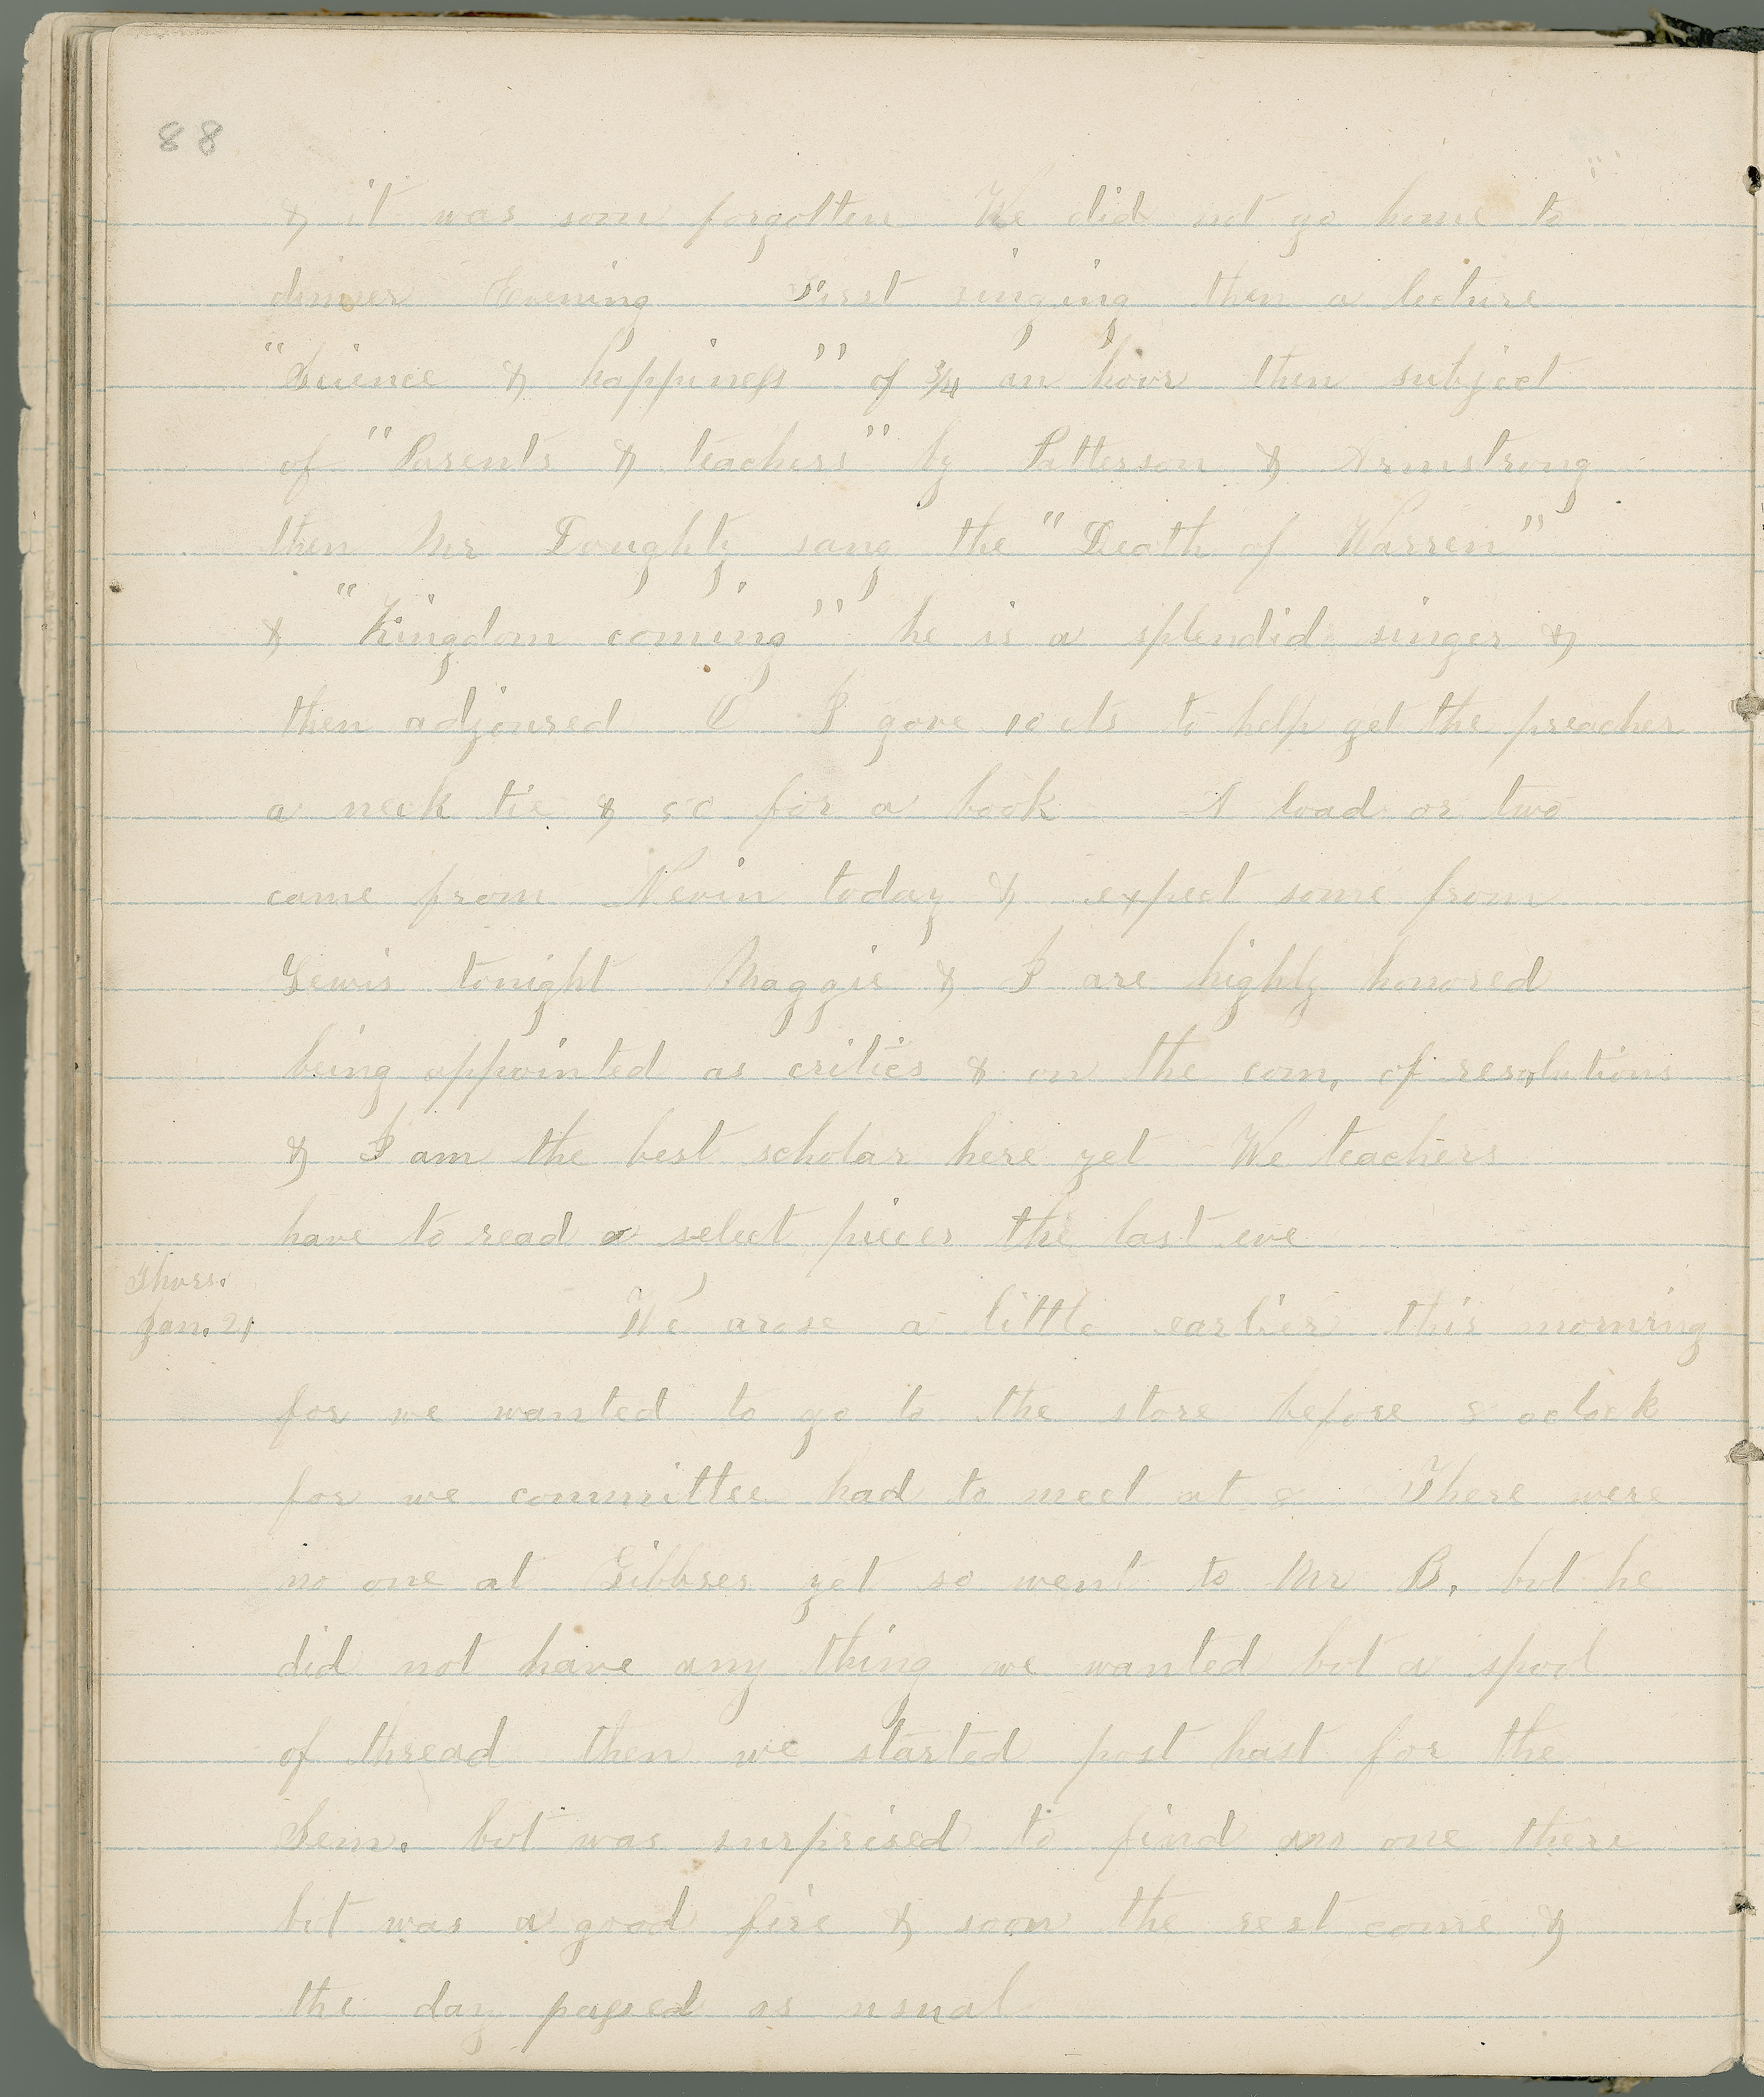 88
& it was soon forgotten We did not go home to
dinner Evening First singing then a lecture
"Science & happiness" of 3/4 an hour then subject
of "Parents & teachers" by Patterson & Armstrong
then Mr Doughty sang the "Death of Warren"
& "Kingdom coming" he is a splendid singer &
then adjoured I gave 10 cts to help get the preacher
a neck tie & 50 for a book A load or two
came from Nevin today & expect some from
Lewis tonight Maggie & I are highly honored
being appointed as critics & on the com, of resolutions
& I am the best scholar here yet We teachers
have to read a select pieces the last eve
Thurs.
Jan. 21
We arose a little earlier this morning
for we wanted to go to the store before 8 oclock
for we committee had to meet at 8 There were
no one at Gibbses yet so went to Mr B. but he
did not have any thing we wanted but a spool
of thread then we started post hast for the
Sem. but was surprised to find no one there
but was a good fire & soon the rest come &
the day passed as usual